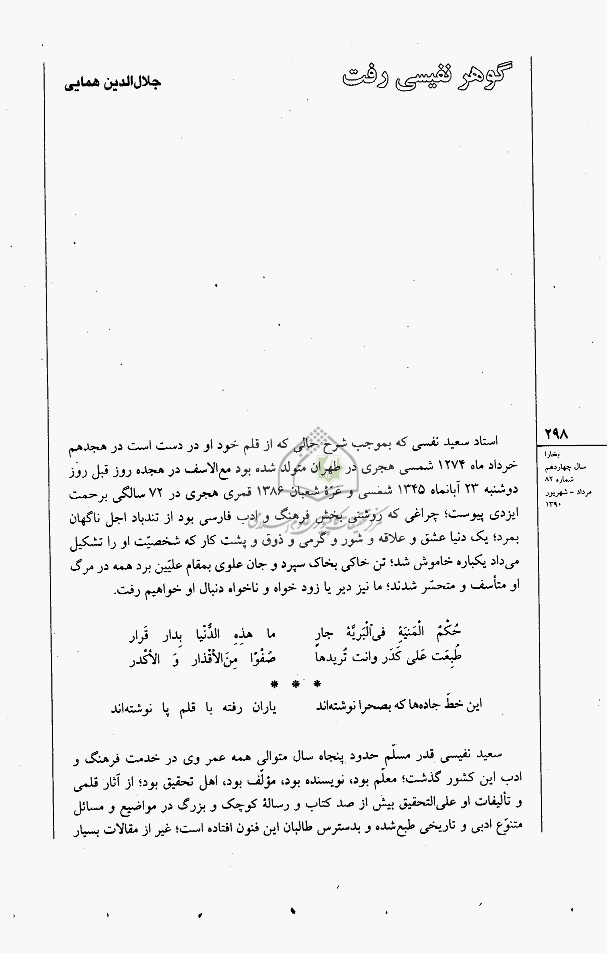 گوهر نفیسی رفت
جلال‌الدین همایی
۲۹۸
بخارا
سال چهاردهم
شماره ۸۲
مرداد - شهریور
۱۳۹۰
استاد سعید نفسی که بموجب شرح حالی که از قلم خود او در دست است در هجدهم
خرداد ماه ۱۲۷۴ شمسی هجری در طهران متولد شده بود مع‌الاسف در هجده روز قبل روز
دوشنبه ۲۳ آبانماه ۱۳۴۵ شمسی و غرّهٔ شعبان ۱۳۸۶ قمری هجری در ۷۲ سالگی برحمت
ایزدی پیوست؛ چراغی که روشنی بخش فرهنگ و ادب فارسی بود از تندباد اجل ناگهان
بمرد؛ یک دنیا عشق و علاقه و شور و گرمی و ذوق و پشت کار که شخصیّت او را تشکیل
می‌داد یکباره خاموش شد؛ تن خاکی بخاک سپرد و جان علوی بمقام علیّین برد همه در مرگ
او متأسف و متحسّر شدند؛ ما نیز دیر یا زود خواه و ناخواه دنبال او خواهیم رفت.
حُکْمُ الْمَنیَةِ فی‌اَلْبَریَّةُ جارِ ما هذِهِ الدُّنْیا بِدار قَرار
طُبِعَت عَلی کَدَر وانت تُریدها صَفْوًا مِنَ‌الأقْذار وَ الأکْدر
* * *
این خطّ جاده‌ها که بصحرا نوشته‌اند یاران رفته با قلم پا نوشته‌اند
سعید نفیسی قدر مسلّم حدود پنجاه سال متوالی همه عمر وی در خدمت فرهنگ و
ادب این کشور گذشت؛ معلّم بود، نویسنده بود، مؤلّف بود، اهل تحقیق بود؛ از آثار قلمی
و تألیفات او علی‌التحقیق بیش از صد کتاب و رسالهٔ کوچک و بزرگ در مواضیع و مسائل
متنوّع ادبی و تاریخی طبع‌شده و بدسترس طالبان این فنون افتاده است؛ غیر از مقالات بسیار